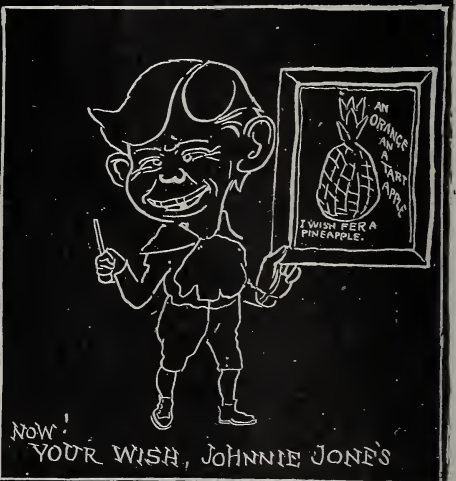 AN
ORANGE
AN
A
TART
APPLE
I WISH FER A
PINEAPPLE.
NOW!
YOUR WISH, JOHNNIE JONE'S